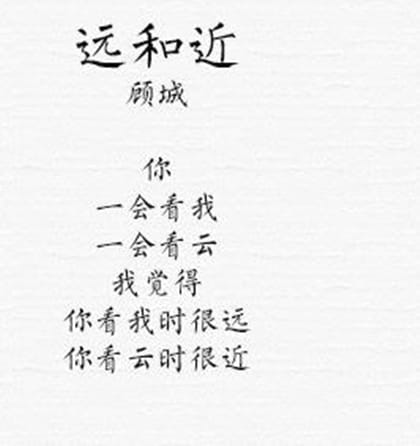 远和近
顾城
你
一会看我
一会看云
我觉得
你看我时很远
你看云时很近